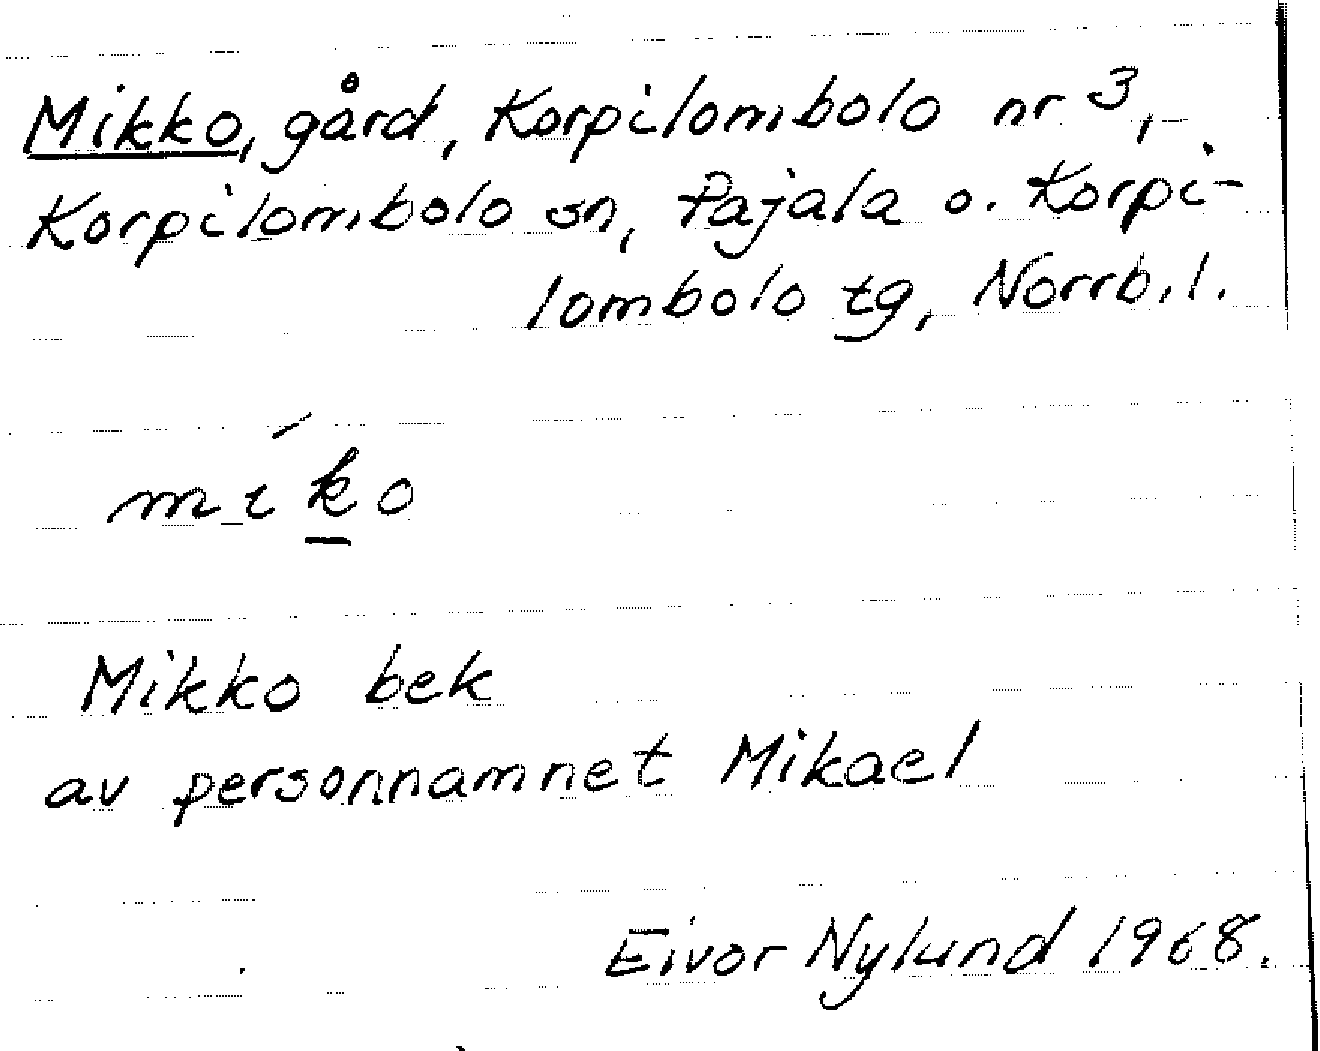 Mikko, gård, Korpilombolo nr 3,
Korpilombolo sn, Pajala o. Korpi-
lombolo tg, Norrb. l.
míḵo
Mikko bek
av personnamnet Mikael
Eivor Nylund 1968.